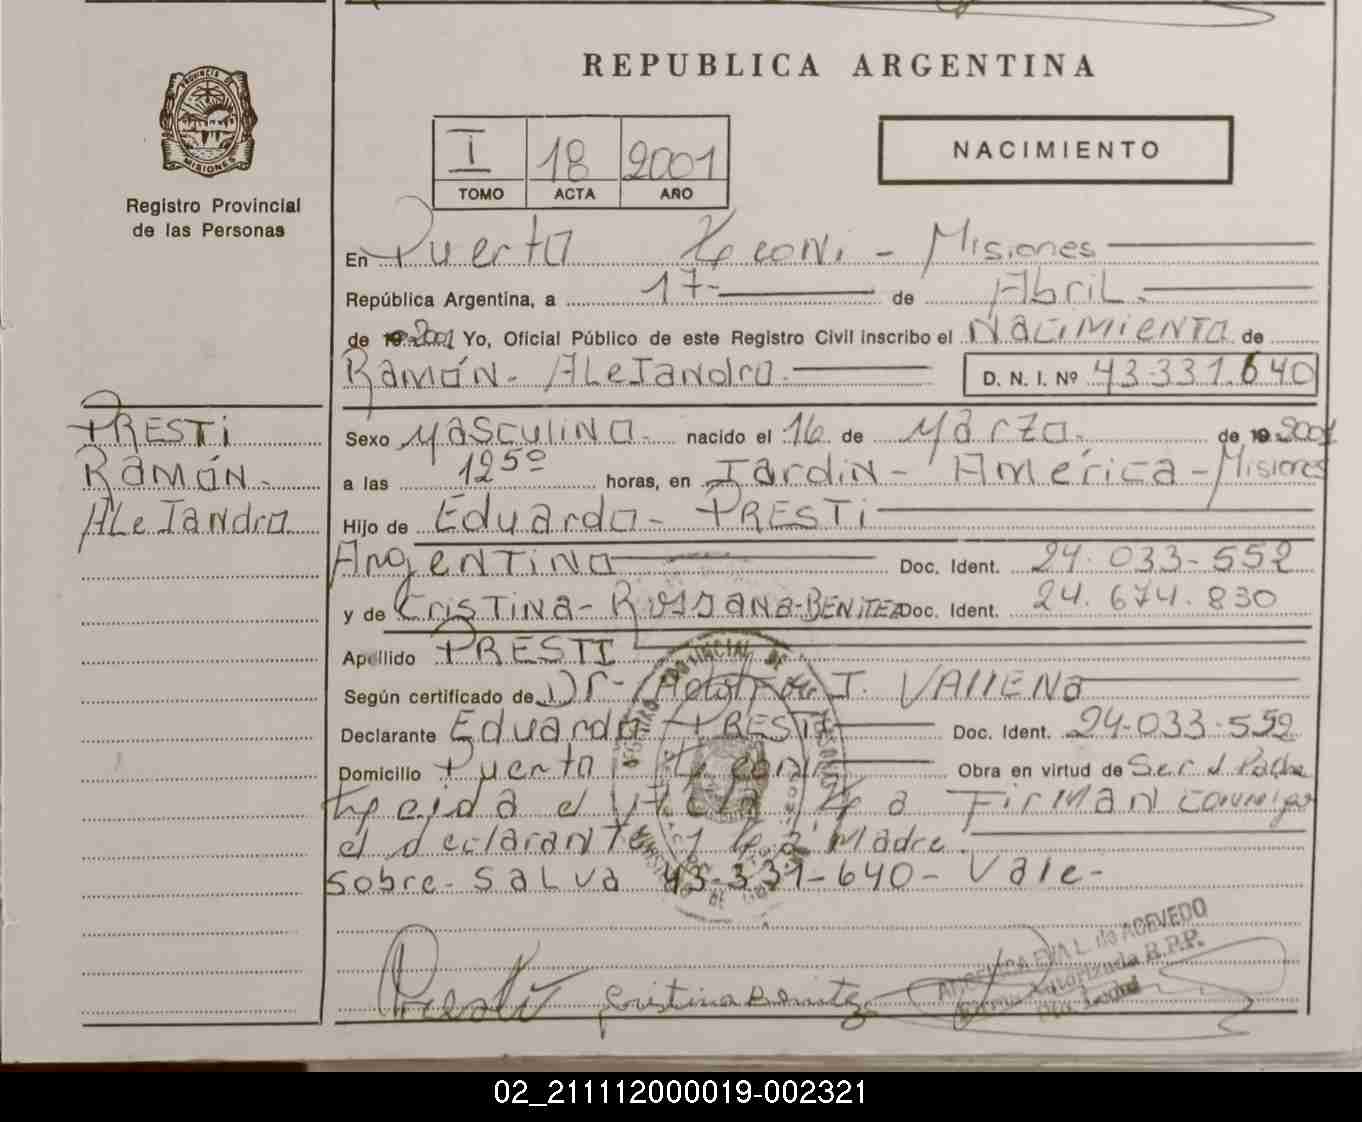 REPUBLICA ARGENTINA
PROVINCIA DE
MISIONES
Registro Provincial
de las Personas
I 18 2001
TOMO ACTA AÑO
NACIMIENTO
En Puerto Leoni - Misiones
República Argentina, a 17- de Abril.
de 19 2001 Yo, Oficial Público de este Registro Civil inscribo el Nacimiento de
Ramón- Alejandro. D. N. I. Nº 43.331.640
PRESTI
Ramón-
Alejandro
Sexo Masculino. nacido el 16 de Marzo. de 19 2001
a las 1250 horas, en Jardin- América- Misiones
Hijo de Eduardo- PRESTI
Argentino Doc. Ident. 24.033-552
y de Cristina- Rossana-BENITEZ Doc. Ident. 24.674.830
Apellido PRESTI
Según certificado de Dr- J. VAllENa
Declarante Eduardo PRESTI Doc. Ident. 24-033-552
Domicilio Puerto Leoni Obra en virtud de Ser el Padre
Leida el Acta La Firman conmigo
el declarante y La Madre.
Sobre-Salva 43-331-640- Vale-
Presti Cristina Benitez
EVA L. de ACEVEDO
Autorizada R.P.P.
02_211112000019-002321